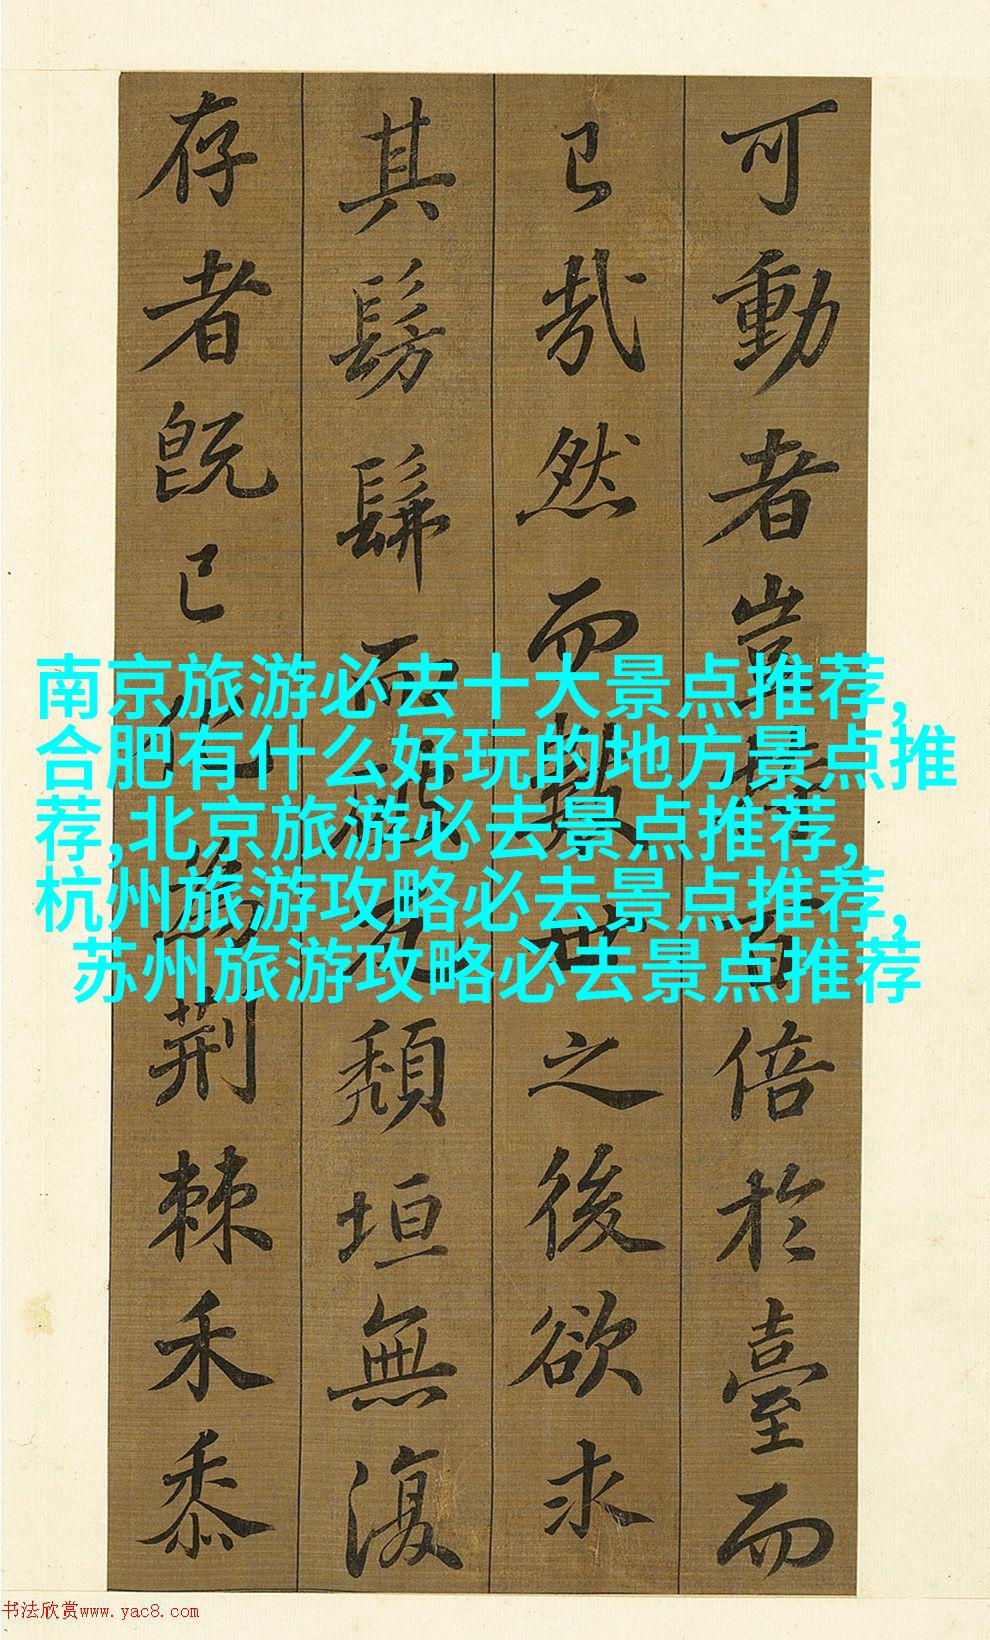 可動者豈特百倍於臺而
已哉然而數世之後欲求
其髣髴而破瓦頹垣無復
存者既已化為荊棘禾黍
南京旅游必去十大景点推荐,
合肥有什么好玩的地方景点推
荐,北京旅游必去景点推荐,
杭州旅游攻略必去景点推荐,
苏州旅游攻略必去景点推荐
书法欣赏www.yac8.com